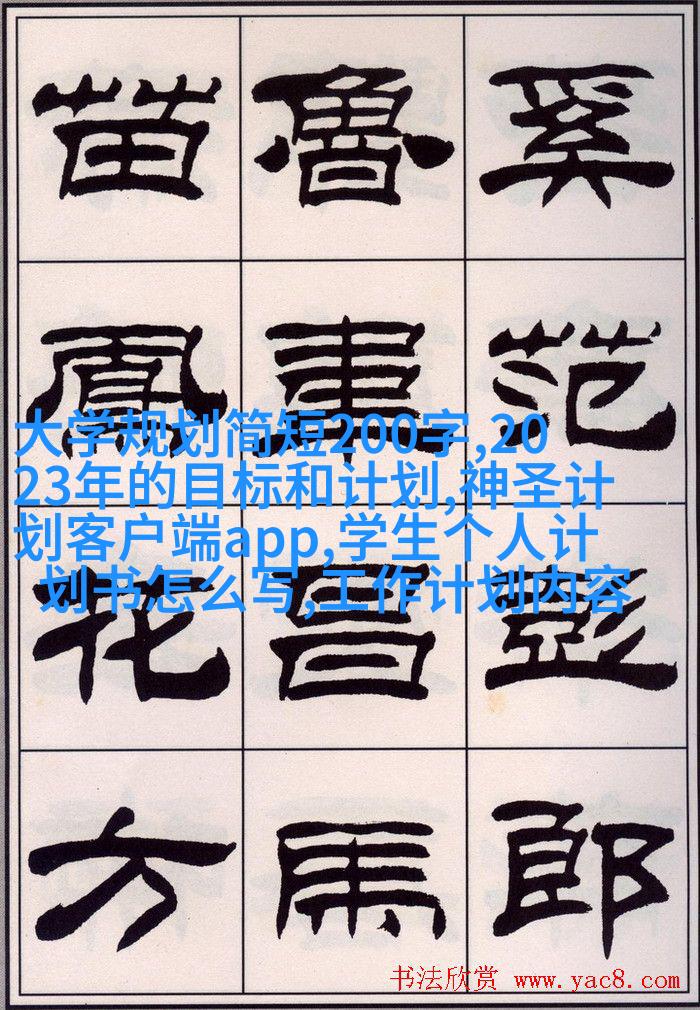 奚范彭郎
魯韋昌馬
苗鳳花方
大学规划简短200字,20
23年的目标和计划,神圣计
划客户端app,学生个人计
划书怎么写,工作计划内容
书法欣赏 www.yac8.com